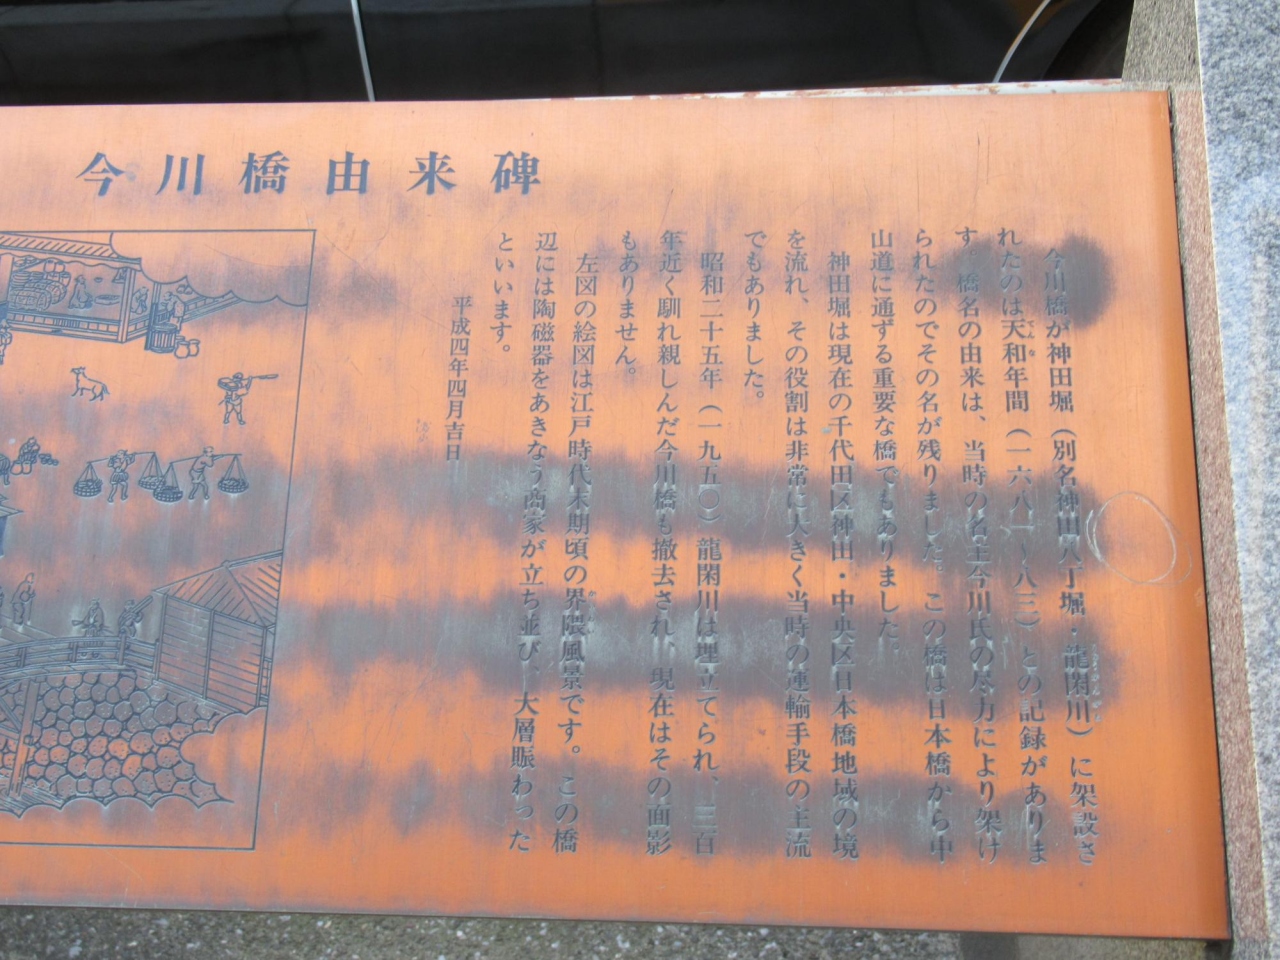 今川橋由来碑
今川橋が神田堀（別名神田八丁堀・龍閑川）に架設さ
れたのは天和年間（一六八一～八三）との記録がありま
す。橋名の由来は、当時の名主今川氏の尽力により架け
られたのでその名が残りました。この橋は日本橋から中
山道に通ずる重要な橋でもありました。
神田堀は現在の千代田区神田・中央区日本橋地域の境
を流れ、その役割は非常に大きく当時の運輸手段の主流
でもありました。
昭和二十五年（一九五〇）龍閑川は埋立てられ、三百
年近く馴れ親しんだ今川橋も撤去され、現在はその面影
もありません。
左図の絵図は江戸時代末期頃の界隈風景です。この橋
辺には陶磁器をあきなう商家が立ち並び、大層賑わった
といいます。
平成四年四月吉日